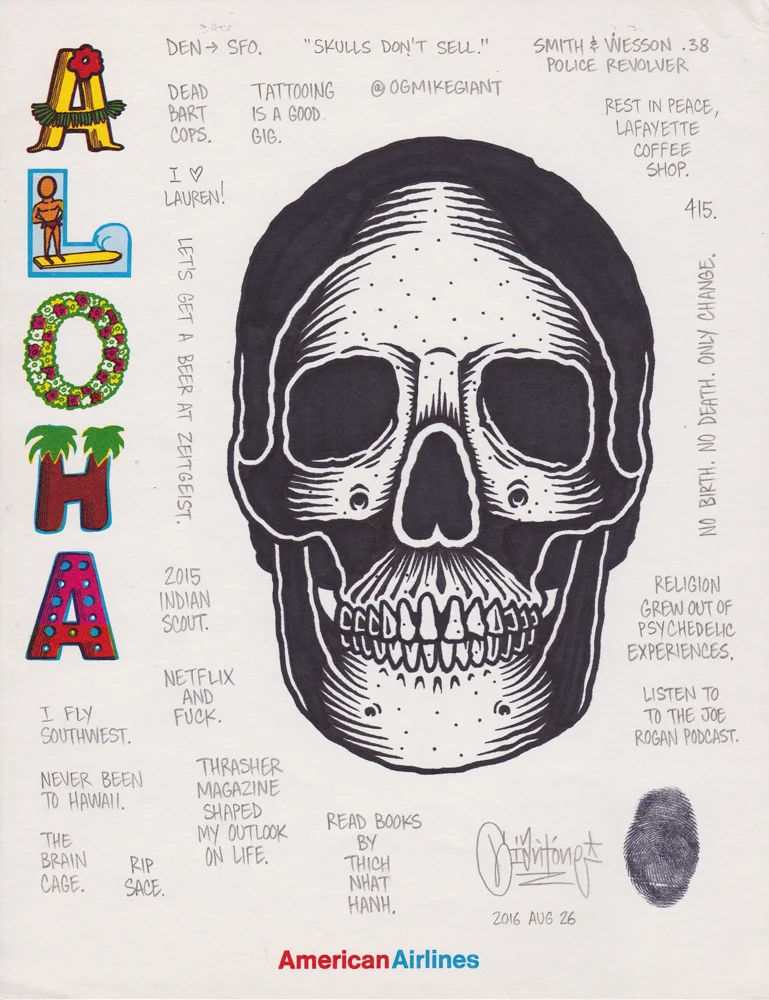 ALOHA
DEN → SFO.
"SKULLS DON'T SELL."
SMITH & WESSON .38
POLICE REVOLVER
DEAD
BART
COPS.
TATTOOING
IS A GOOD
GIG.
@OGMIKEGIANT
REST IN PEACE,
LAFAYETTE
COFFEE
SHOP.
I ♡
LAUREN!
415.
LET'S GET A BEER AT ZEITGEIST.
NO BIRTH. NO DEATH. ONLY CHANGE.
2015
INDIAN
SCOUT.
RELIGION
GREW OUT OF
PSYCHEDELIC
EXPERIENCES.
NETFLIX
AND
FUCK.
LISTEN TO
TO THE JOE
ROGAN PODCAST.
I FLY
SOUTHWEST.
NEVER BEEN
TO HAWAII.
THRASHER
MAGAZINE
SHAPED
MY OUTLOOK
ON LIFE.
READ BOOKS
BY
THICH
NHAT
HANH.
THE
BRAIN
CAGE.
RIP
SACE.
2016 AUG 26
AmericanAirlines